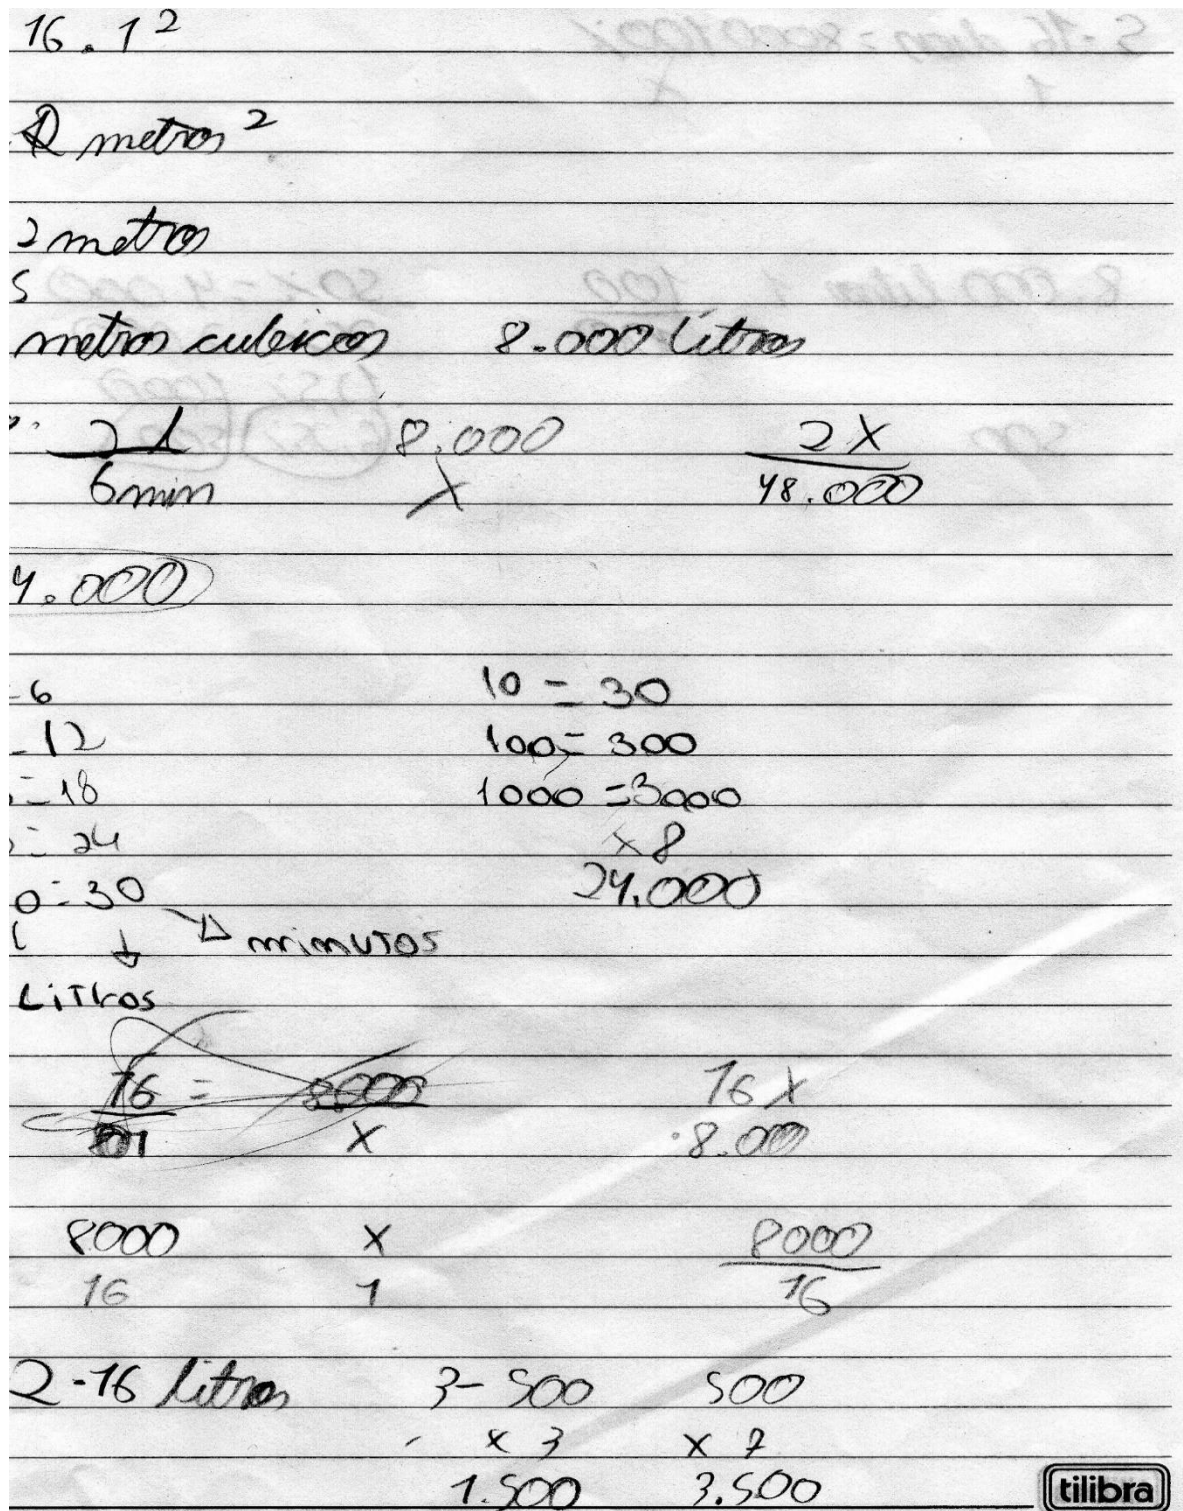 16.1²
metros²
2 metros
S
metros cubicos 8.000 Litros
2 l 8.000 2X
6min X 48.000
4.000
-6 10 = 30
-12 100= 300
=18 1000 =3000
= 24 x8
0=30 24.000
minutos
LiTros
16 = 8000 16X
1 X 8.000
8000 X 8000
16 1 16
2-16 litros 3- 500 500
x 3 x 7
1.500 3.500
tilibra